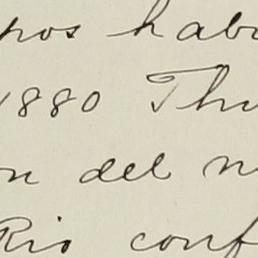 pos hab
1880 Thu
n del n
Rio conf